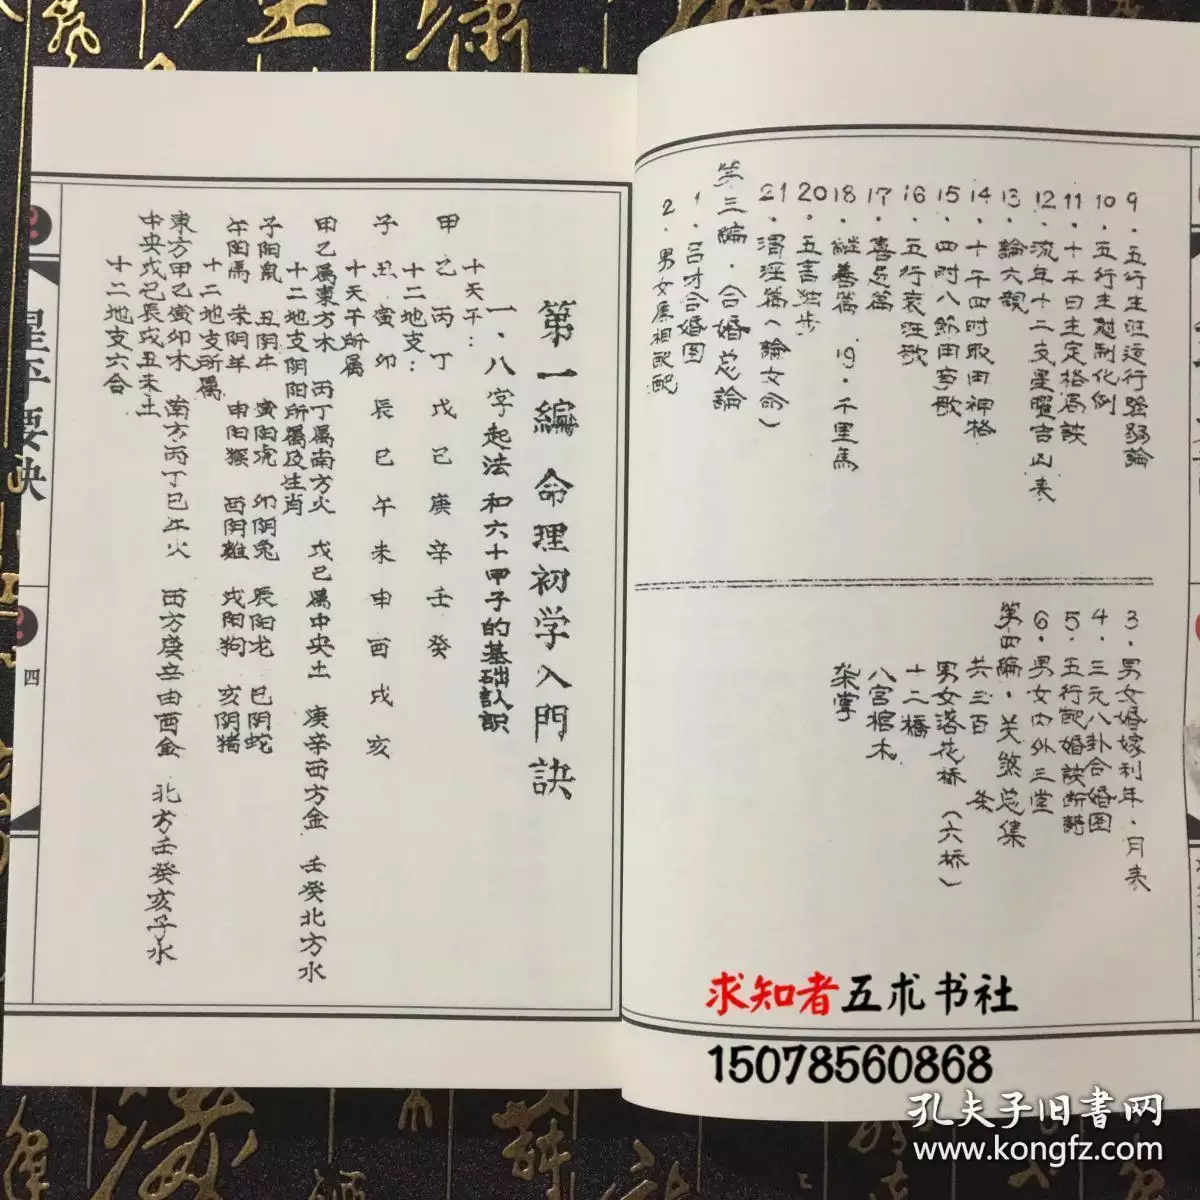 9.五行生旺运行强弱論
10.五行生尅制化例
11.十干日主定格局訣
12.流年十二支星曜吉凶表
13.論六親
14.十干四时取用神格
15.四时八節田亨歌
16.五行衰旺歌
17.喜忌篇
18.継善篇 19.千里馬
20.五言独步
21.渭泾篇(論女命)
第三編.合婚总論
1.吕才合婚图
2.男女属相配配
3.男女婚嫁利年.月表
4.三元八卦合婚图
5.五行配婚訣断語
6.男女内外三堂
第四編.关煞总集
共三百 条
男女落花桥(六桥)
十二橋
八宫棺木
第一編 命理初学入門訣
一.八字起法和六十甲子的基础认识
十天干:
甲乙丙丁戊己庚辛壬癸
十二地支:
子丑寅卯辰巳午未申酉戌亥
十天干所属
甲乙属東方木 丙丁属南方火 戊己属中央土 庚辛西方金 壬癸北方水
十二地支阴阳所属及生肖
子阳鼠 丑阴牛 寅阳虎 卯阴兔 辰阳龙 巳阴蛇
午阳馬 未阴羊 申阳猴 酉阴雞 戌阳狗 亥阴猪
十二地支所属
東方甲乙寅卯木 南方丙丁巳午火 西方庚辛申酉金 北方壬癸亥子水
中央戊己辰戌丑未土
十二地支六合
星平要訣
四
求知者五术书社
15078560868
孔夫子旧書网
www.kongfz.com